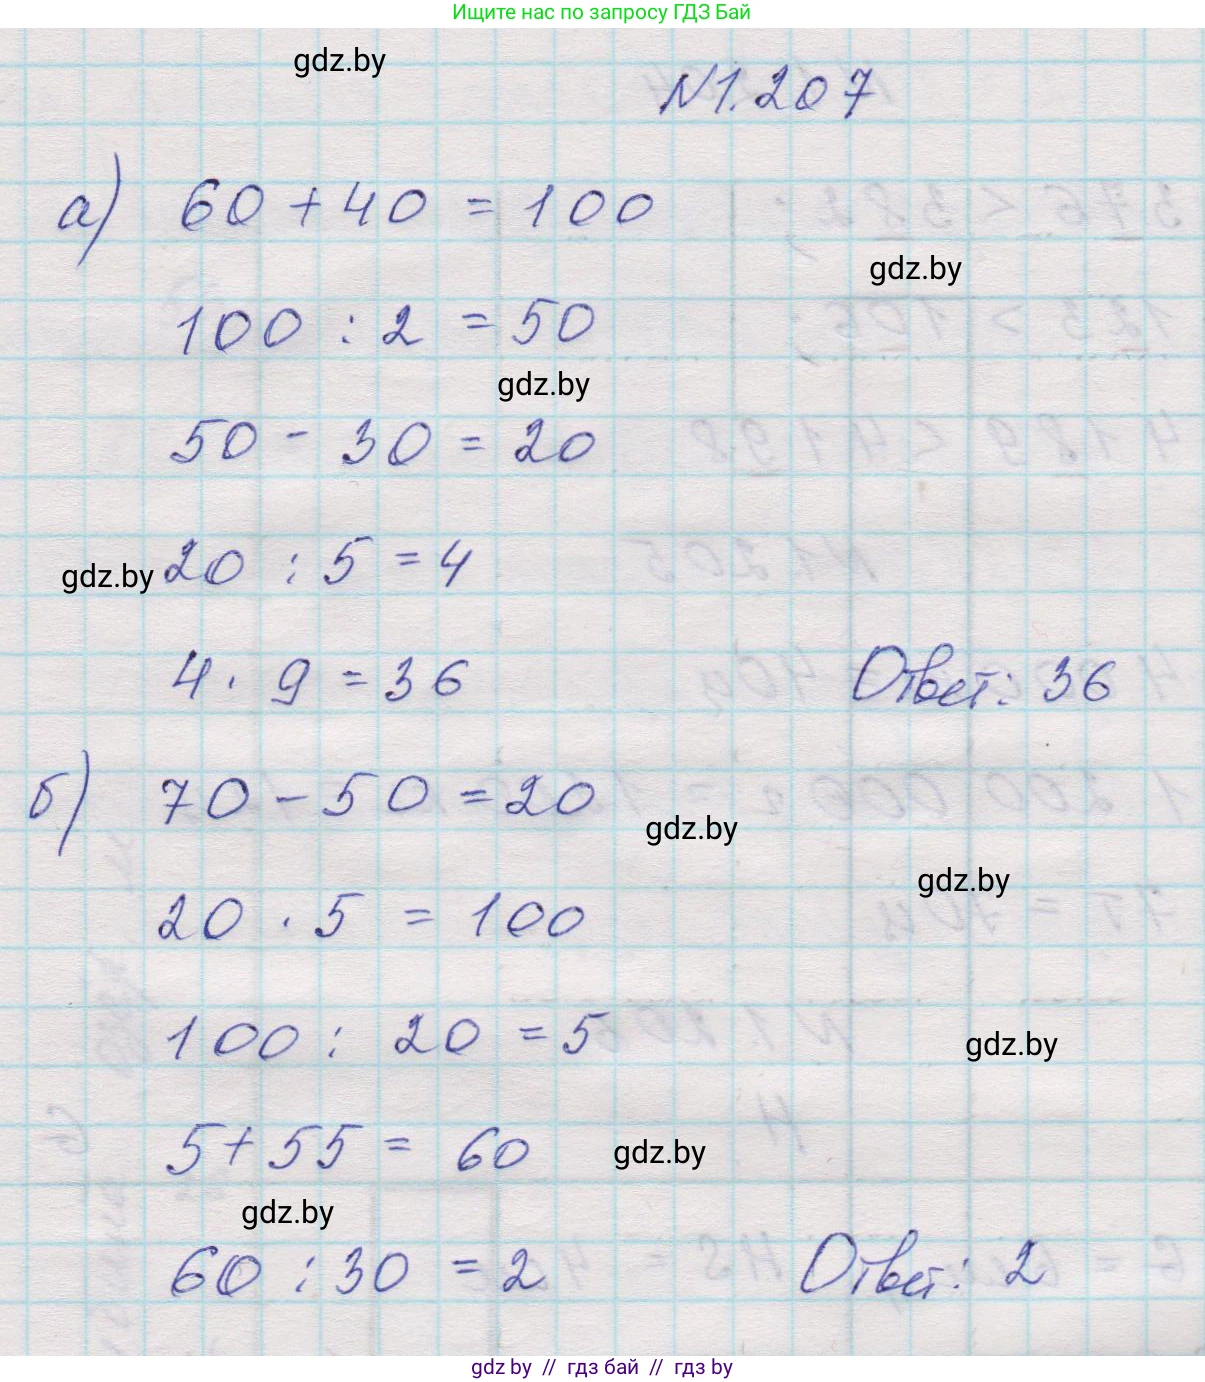 Ищите нас по запросу ГДЗ Бай
gdz.by
N1.207
а) 60 + 40 = 100
gdz.by
100 : 2 = 50
gdz.by
50 - 30 = 20
gdz.by
20 : 5 = 4
4 · 9 = 36
Ответ: 36
б) 70 - 50 = 20
gdz.by
gdz.by
20 · 5 = 100
100 : 20 = 5
gdz.by
5 + 55 = 60
gdz.by
gdz.by
60 : 30 = 2
Ответ: 2
gdz by // гдз бай // гдз by